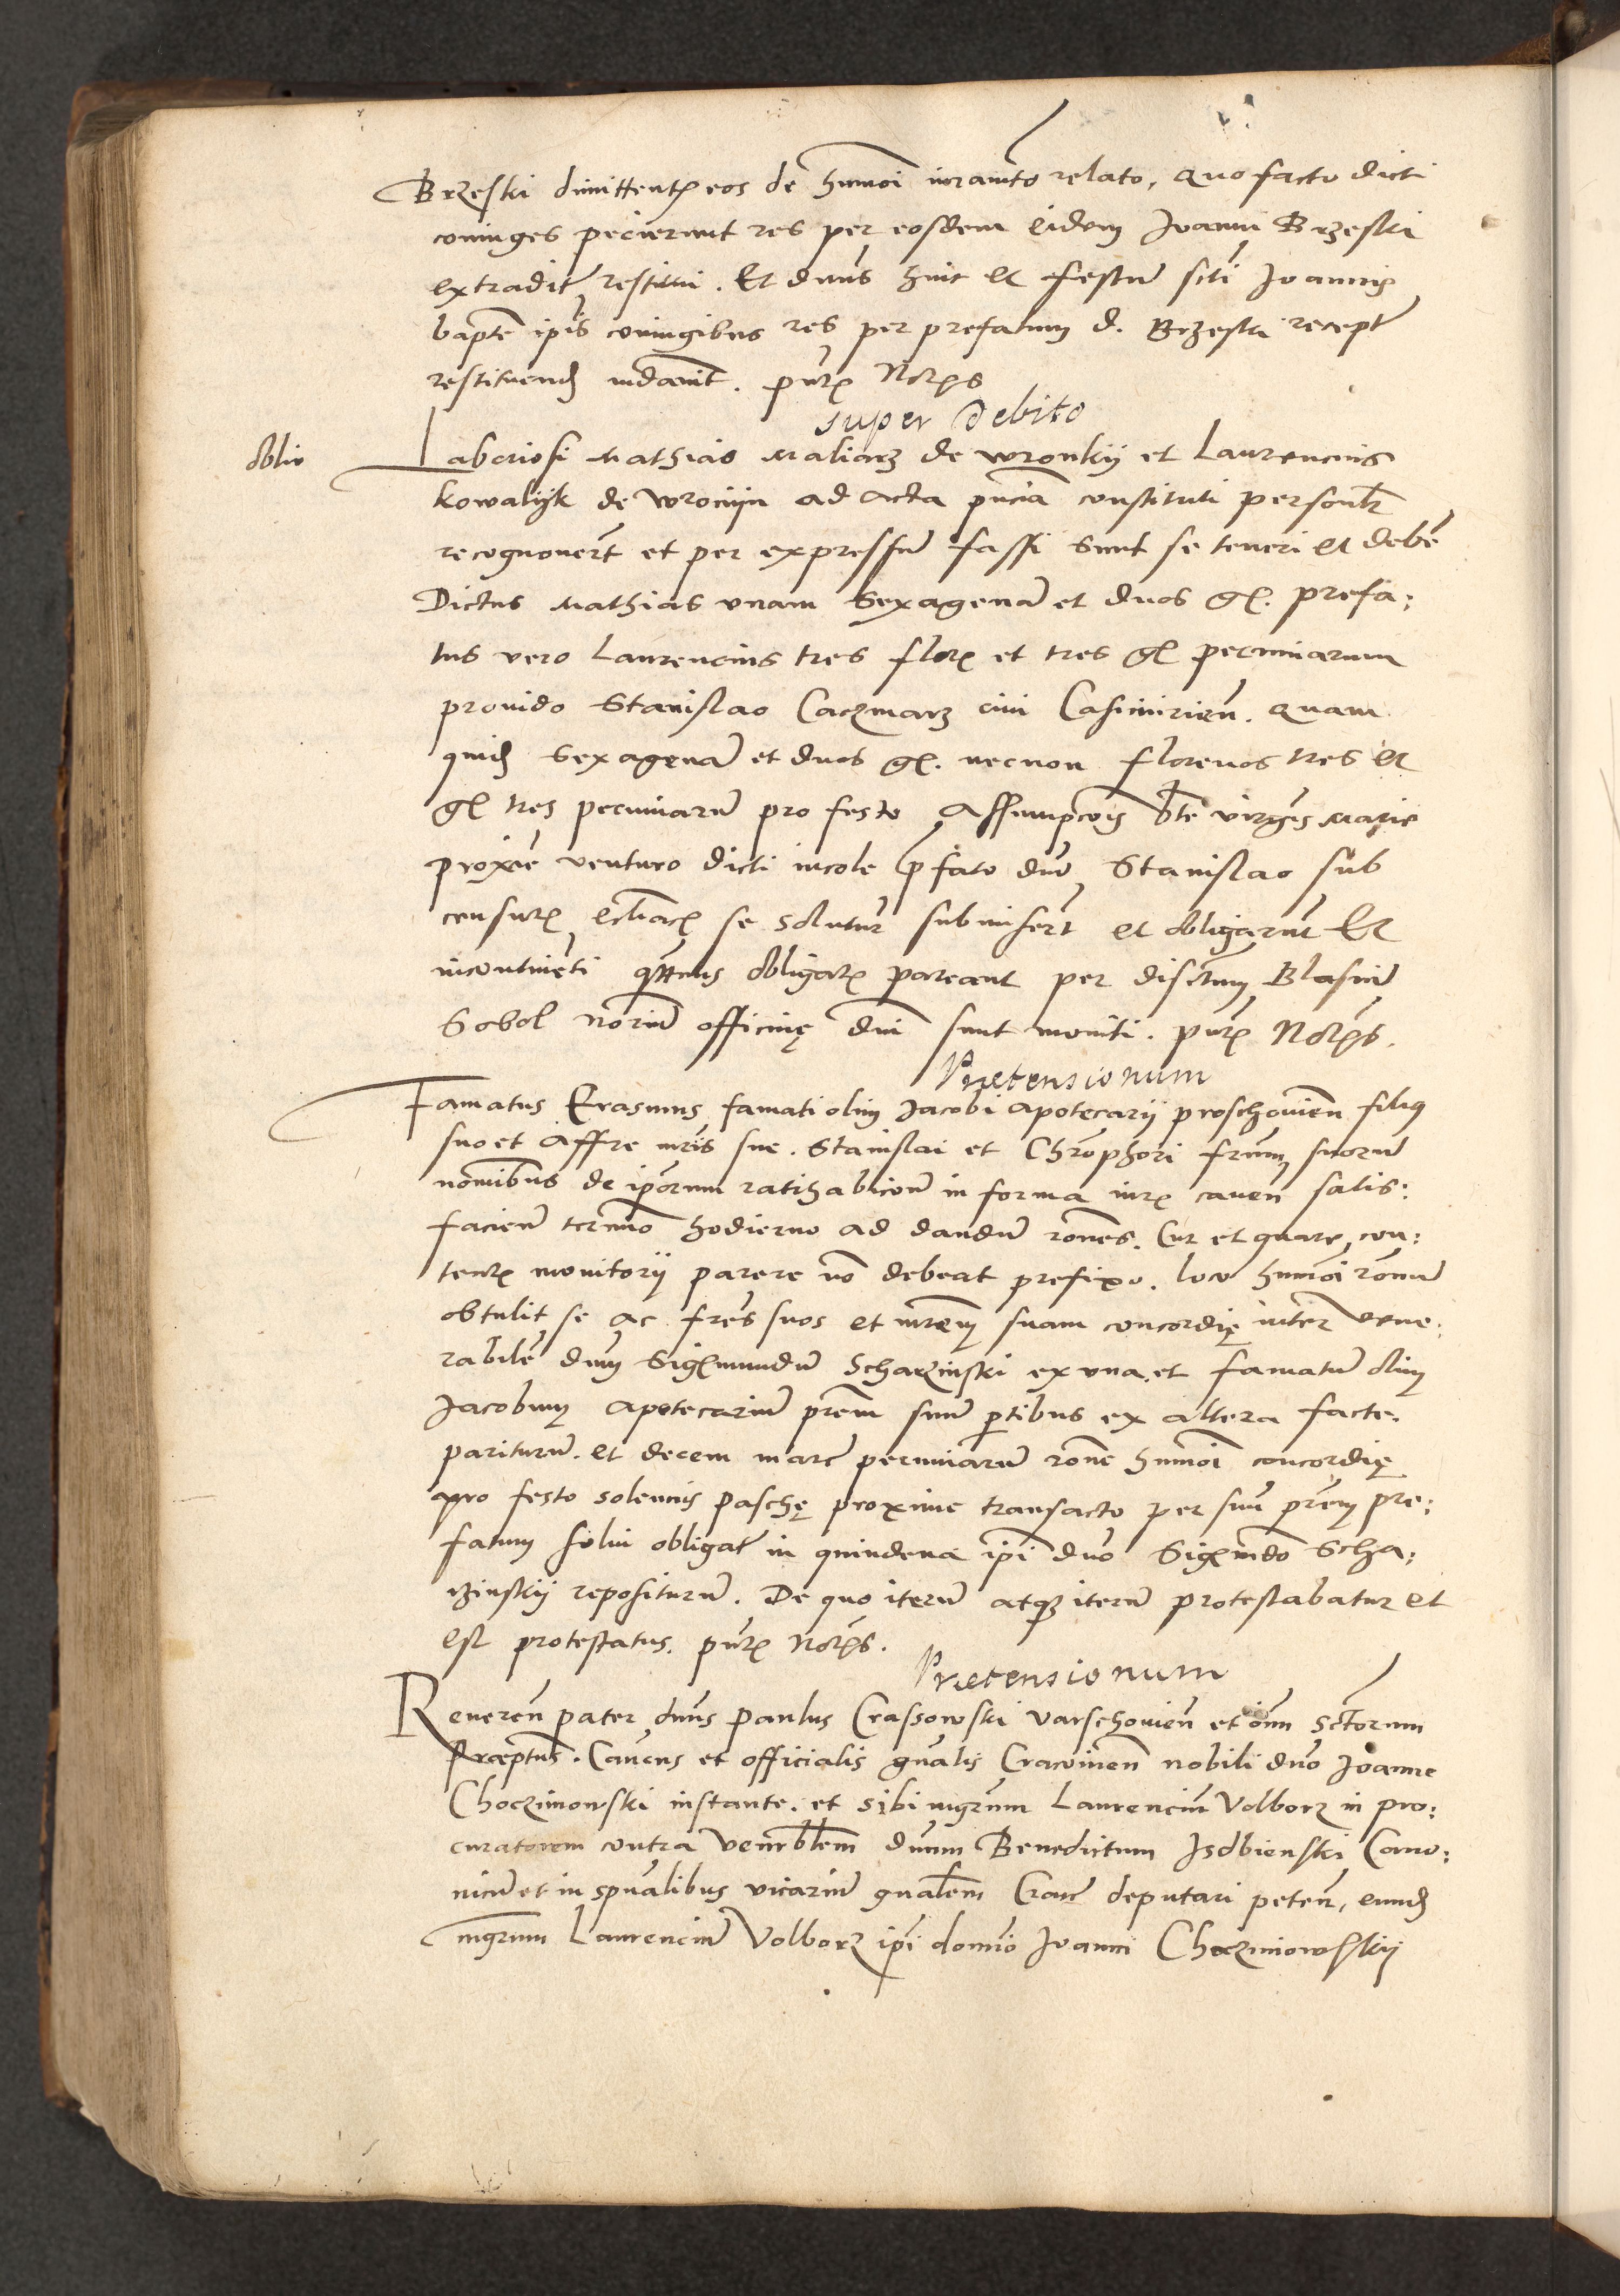 Brzeski dimittentes eos de hmoi iuramto relato, quo facto dicti
coniuges pecierunt res per eosdem eidem Joanni Brzeski
extradit restitui. Et dnus hinc et festum scti Joannis
bapte ipis coniugibus res per prefatum d. Brzeski recept
restituend mdavit. pntz Notrs
super Debito
oblio
Laboriosi Mathias Maliarz de Wronkij et Laurencius
kowalijk de Wrocijn ad acta pncia constituti personlr
recognovert et per expressum fassi sunt se teneri et debe
Dictus Mathias unam sexagena et duos gr. prefa:
tus vero Laurencius tres flor et tres gr pecuniarum
provido Stanislao Caczmarz civi Casimirien. quam
quid sexagena et duos gr. necnon florenos tres et
gr tres pecuniaru pro festo Assumpcois bte virgis Marie
proxie venturo dicti incole pfato dno Stanislao sub
censurz eccliacz se soluturu submisert et obligarunt Et
incontineti qtenus obligatz pareant per discretum Blasiu
Sobol norium officiuę dni sunt moniti. pntz Notrs.
Prætensionum
Famatus Erasmus famati olim Jacobi apotecarij proschovien filius
suo et Affre mris sue. Stanislai et Chrophori frum suoru
nomibus de iporum ratihabicone in forma iurz caven satis:
facieru termio hodierno ad dandu rones. Cur et quare con:
tentz monitorij parere no debeat prefixo. loco hmoi ronu
obtulit se ac fres suos et mrem suam concordię inter vene:
rabile dnm Sigmundu Scharzinski ex una et famatu olim
Jacobum apotecariu prem suum ptibus ex altera facte.
parituru. et decem marc pecuniaru rone hmoi concordię
pro festo solennis paschę proxime transacto per suu prem pre:
fatum solui obligat in quindena ipi dno Sigmdo Scha:
rzinskij reposituru. De quo iteru atqz iteru protestabatur et
est protestatus. pntz Notrs.
Prætensionum
Reveren pater dnus Paulus Crassowski varschovien et oim Sctorum
præptus. Canens et officialis gnalis Cracovien nobili dno Joanne
Choczimowski instante. et sibi mgrum Laurenciu Volborz in pro:
curatorem contra venrblem dnum Benedictum Isdbienski Cano:
nicu et in spualibus vicariu gnalem Crac deputari peten, eund
mgrum Laurenciu Volborz ipi domio Joanni Choczimowskij